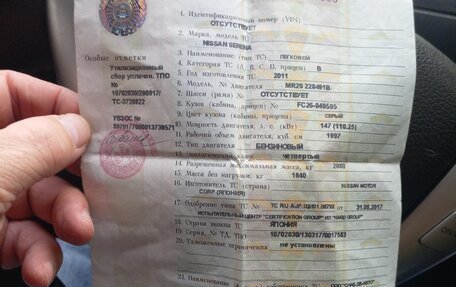 1. Идентификационный номер (VIN)
ОТСУТСТВУЕТ
2. Марка, модель ТС
NISSAN SERENA
3. Наименование (тип) ТС ЛЕГКОВОЙ
4. Категория ТС (А, В, С, D, прицеп) В
5. Год изготовления ТС 2011
6. Модель, № двигателя MR20 228491B
7. Шасси (рама) № ОТСУТСТВУЕТ
8. Кузов (кабина, прицеп) № FC26-049595
9. Цвет кузова (кабины, прицепа) СЕРЫЙ
10. Мощность двигателя, л. с. (кВт) 147 (110.25)
11. Рабочий объем двигателя, куб. см 1997
12. Тип двигателя БЕНЗИНОВЫЙ
13. Экологический класс четвертый
14. Разрешенная максимальная масса, кг 2060
15. Масса без нагрузки, кг 1640
16. Изготовитель ТС (страна) NISSAN MOTOR
CORP (ЯПОНИЯ)
17. Одобрение типа ТС № от 31.08.2017
ИСПЫТАТЕЛЬНЫЙ ЦЕНТР "CERTIFICATION GROUP" ИЛ "HARD GROUP"
18. Страна вывоза ТС ЯПОНИЯ
19. Серия, № ТД, ТПО 10702030/130317/0017583
20. Таможенные ограничения не установлены
21. Наименование
Особые отметки
Утилизационный
сбор уплачен. ТПО
№
10702030/290817/
ТС-3720822
УВЭОС №